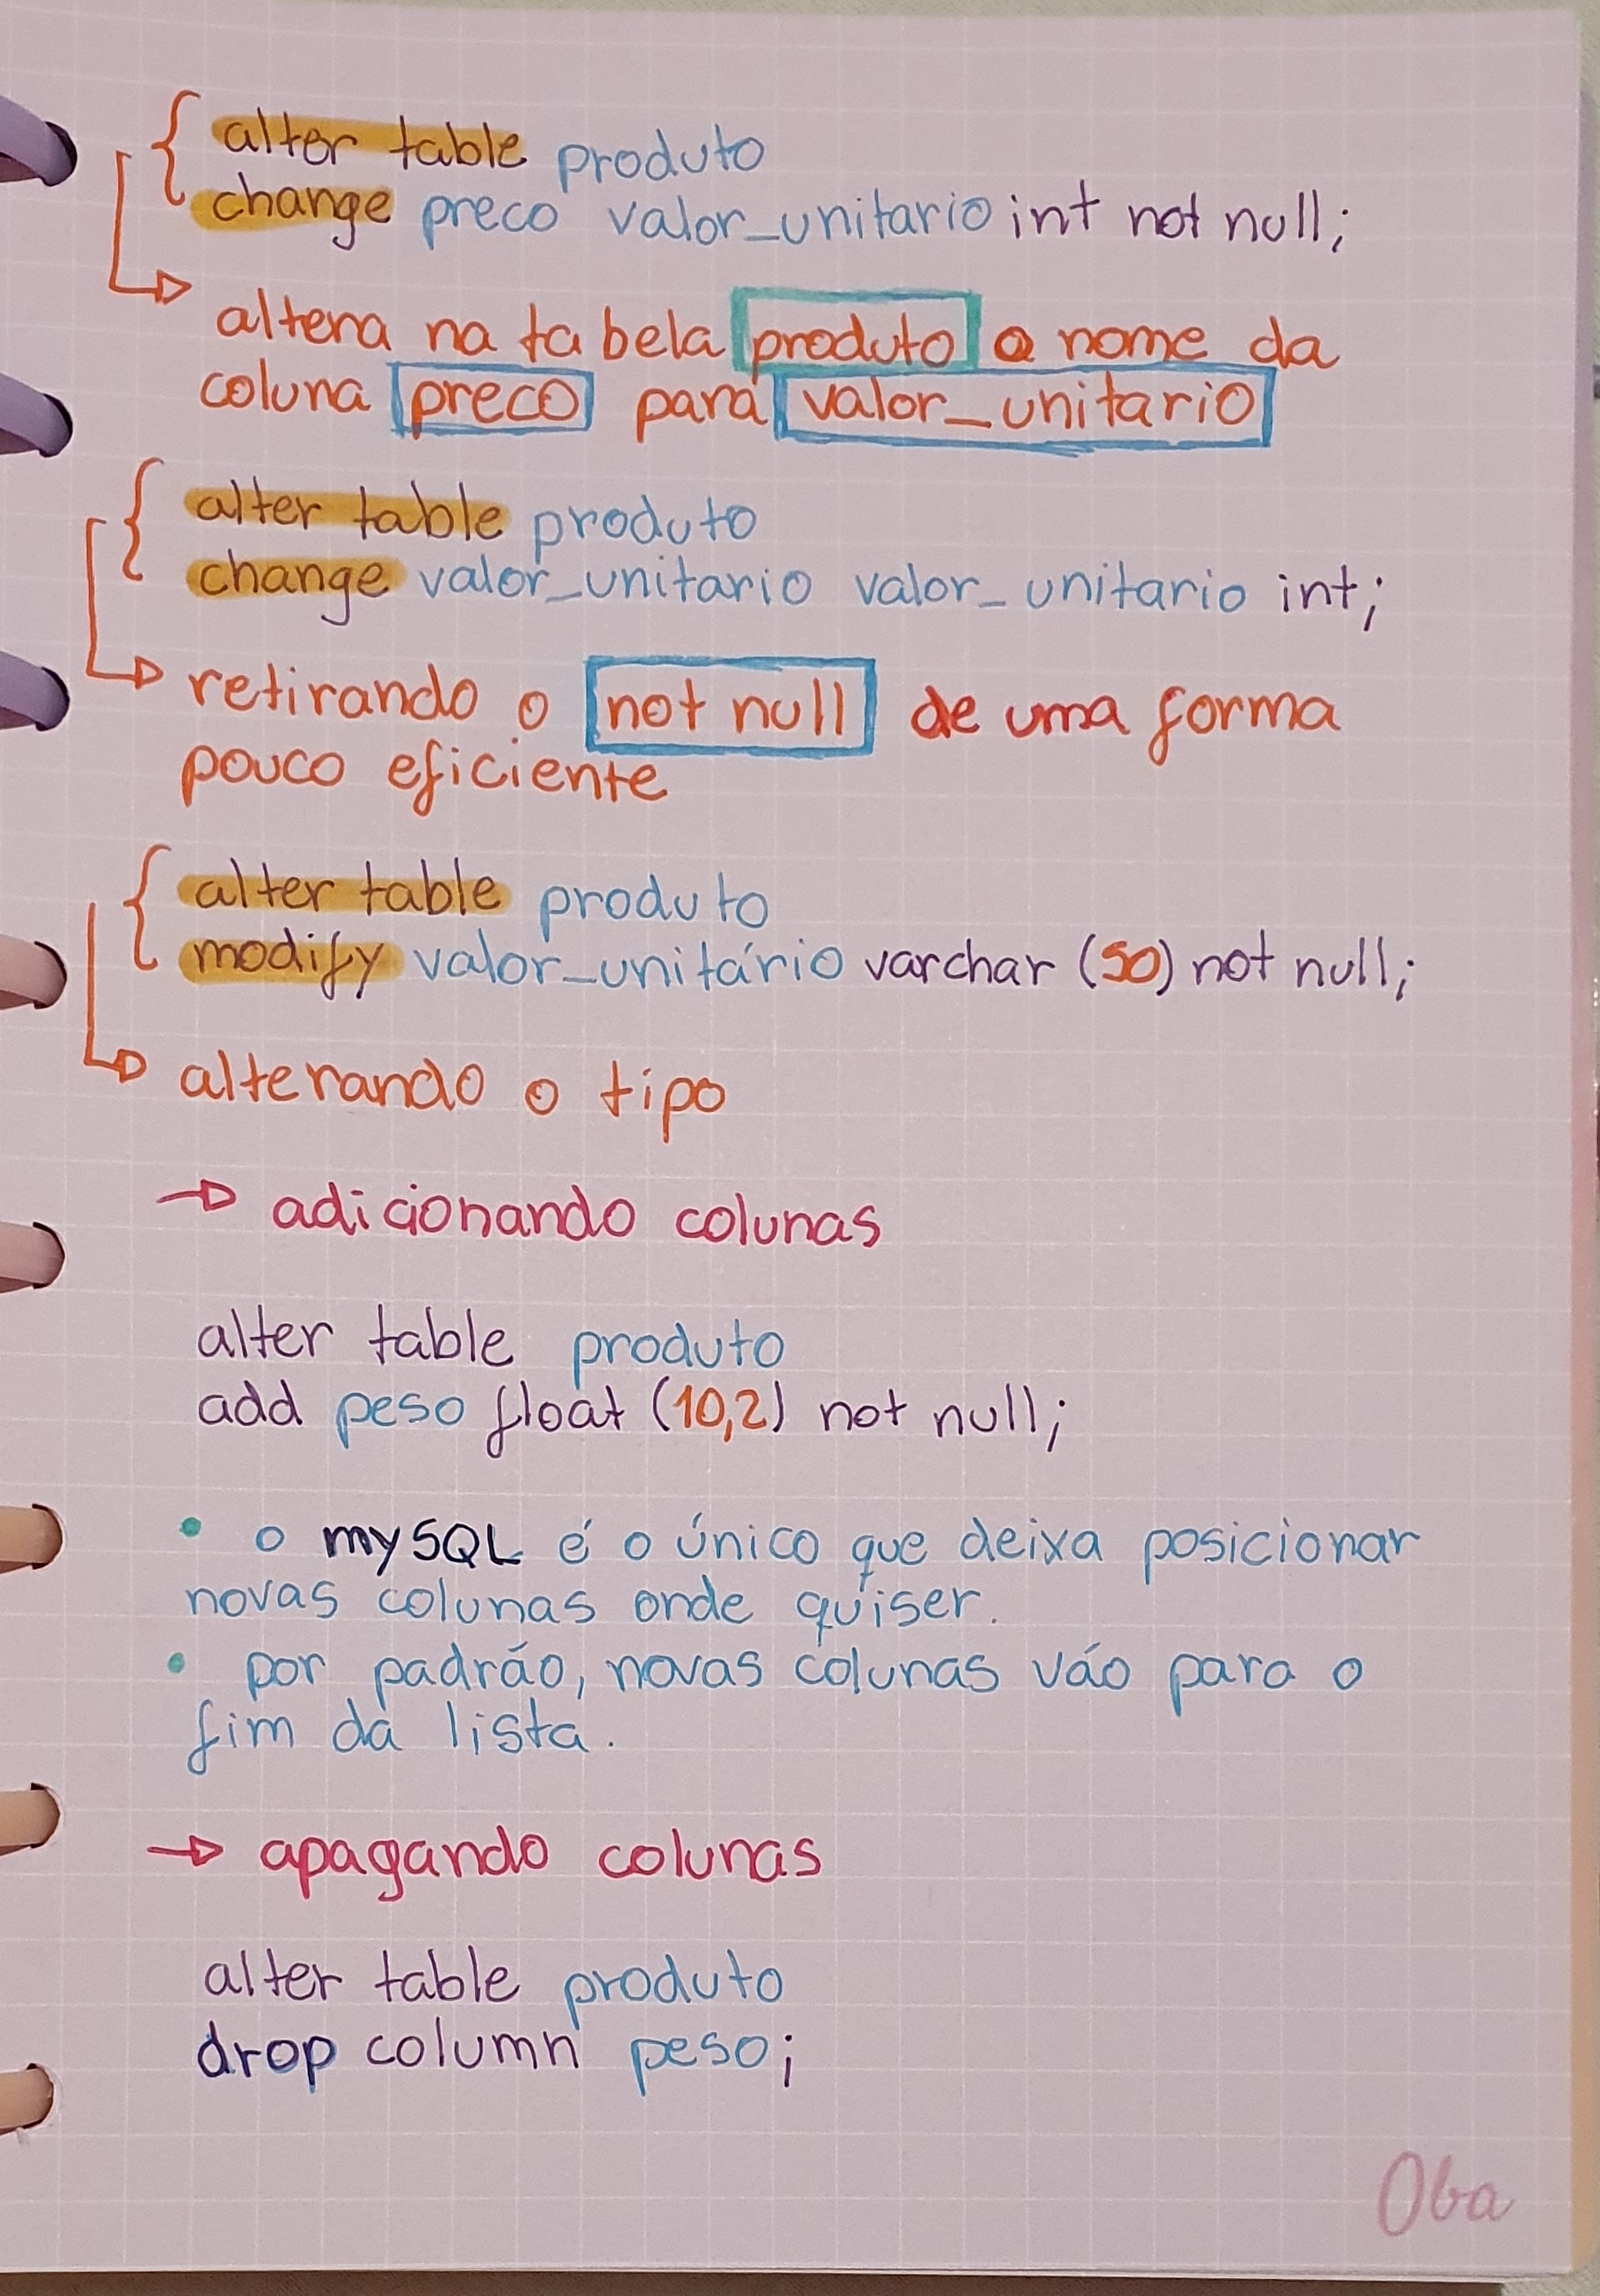 alter table produto
change preco valor_unitario int not null;
altera na tabela produto o nome da
coluna preco para valor_unitario
alter table produto
change valor_unitario valor_unitario int;
retirando o not null de uma forma
pouco eficiente
alter table produto
modify valor_unitário varchar (50) not null;
alterando o tipo
→ adicionando colunas
alter table produto
add peso float (10,2) not null;
• o mySQL é o único que deixa posicionar
novas colunas onde quiser.
• por padrão, novas colunas vão para o
fim da lista.
→ apagando colunas
alter table produto
drop column peso;
Oba